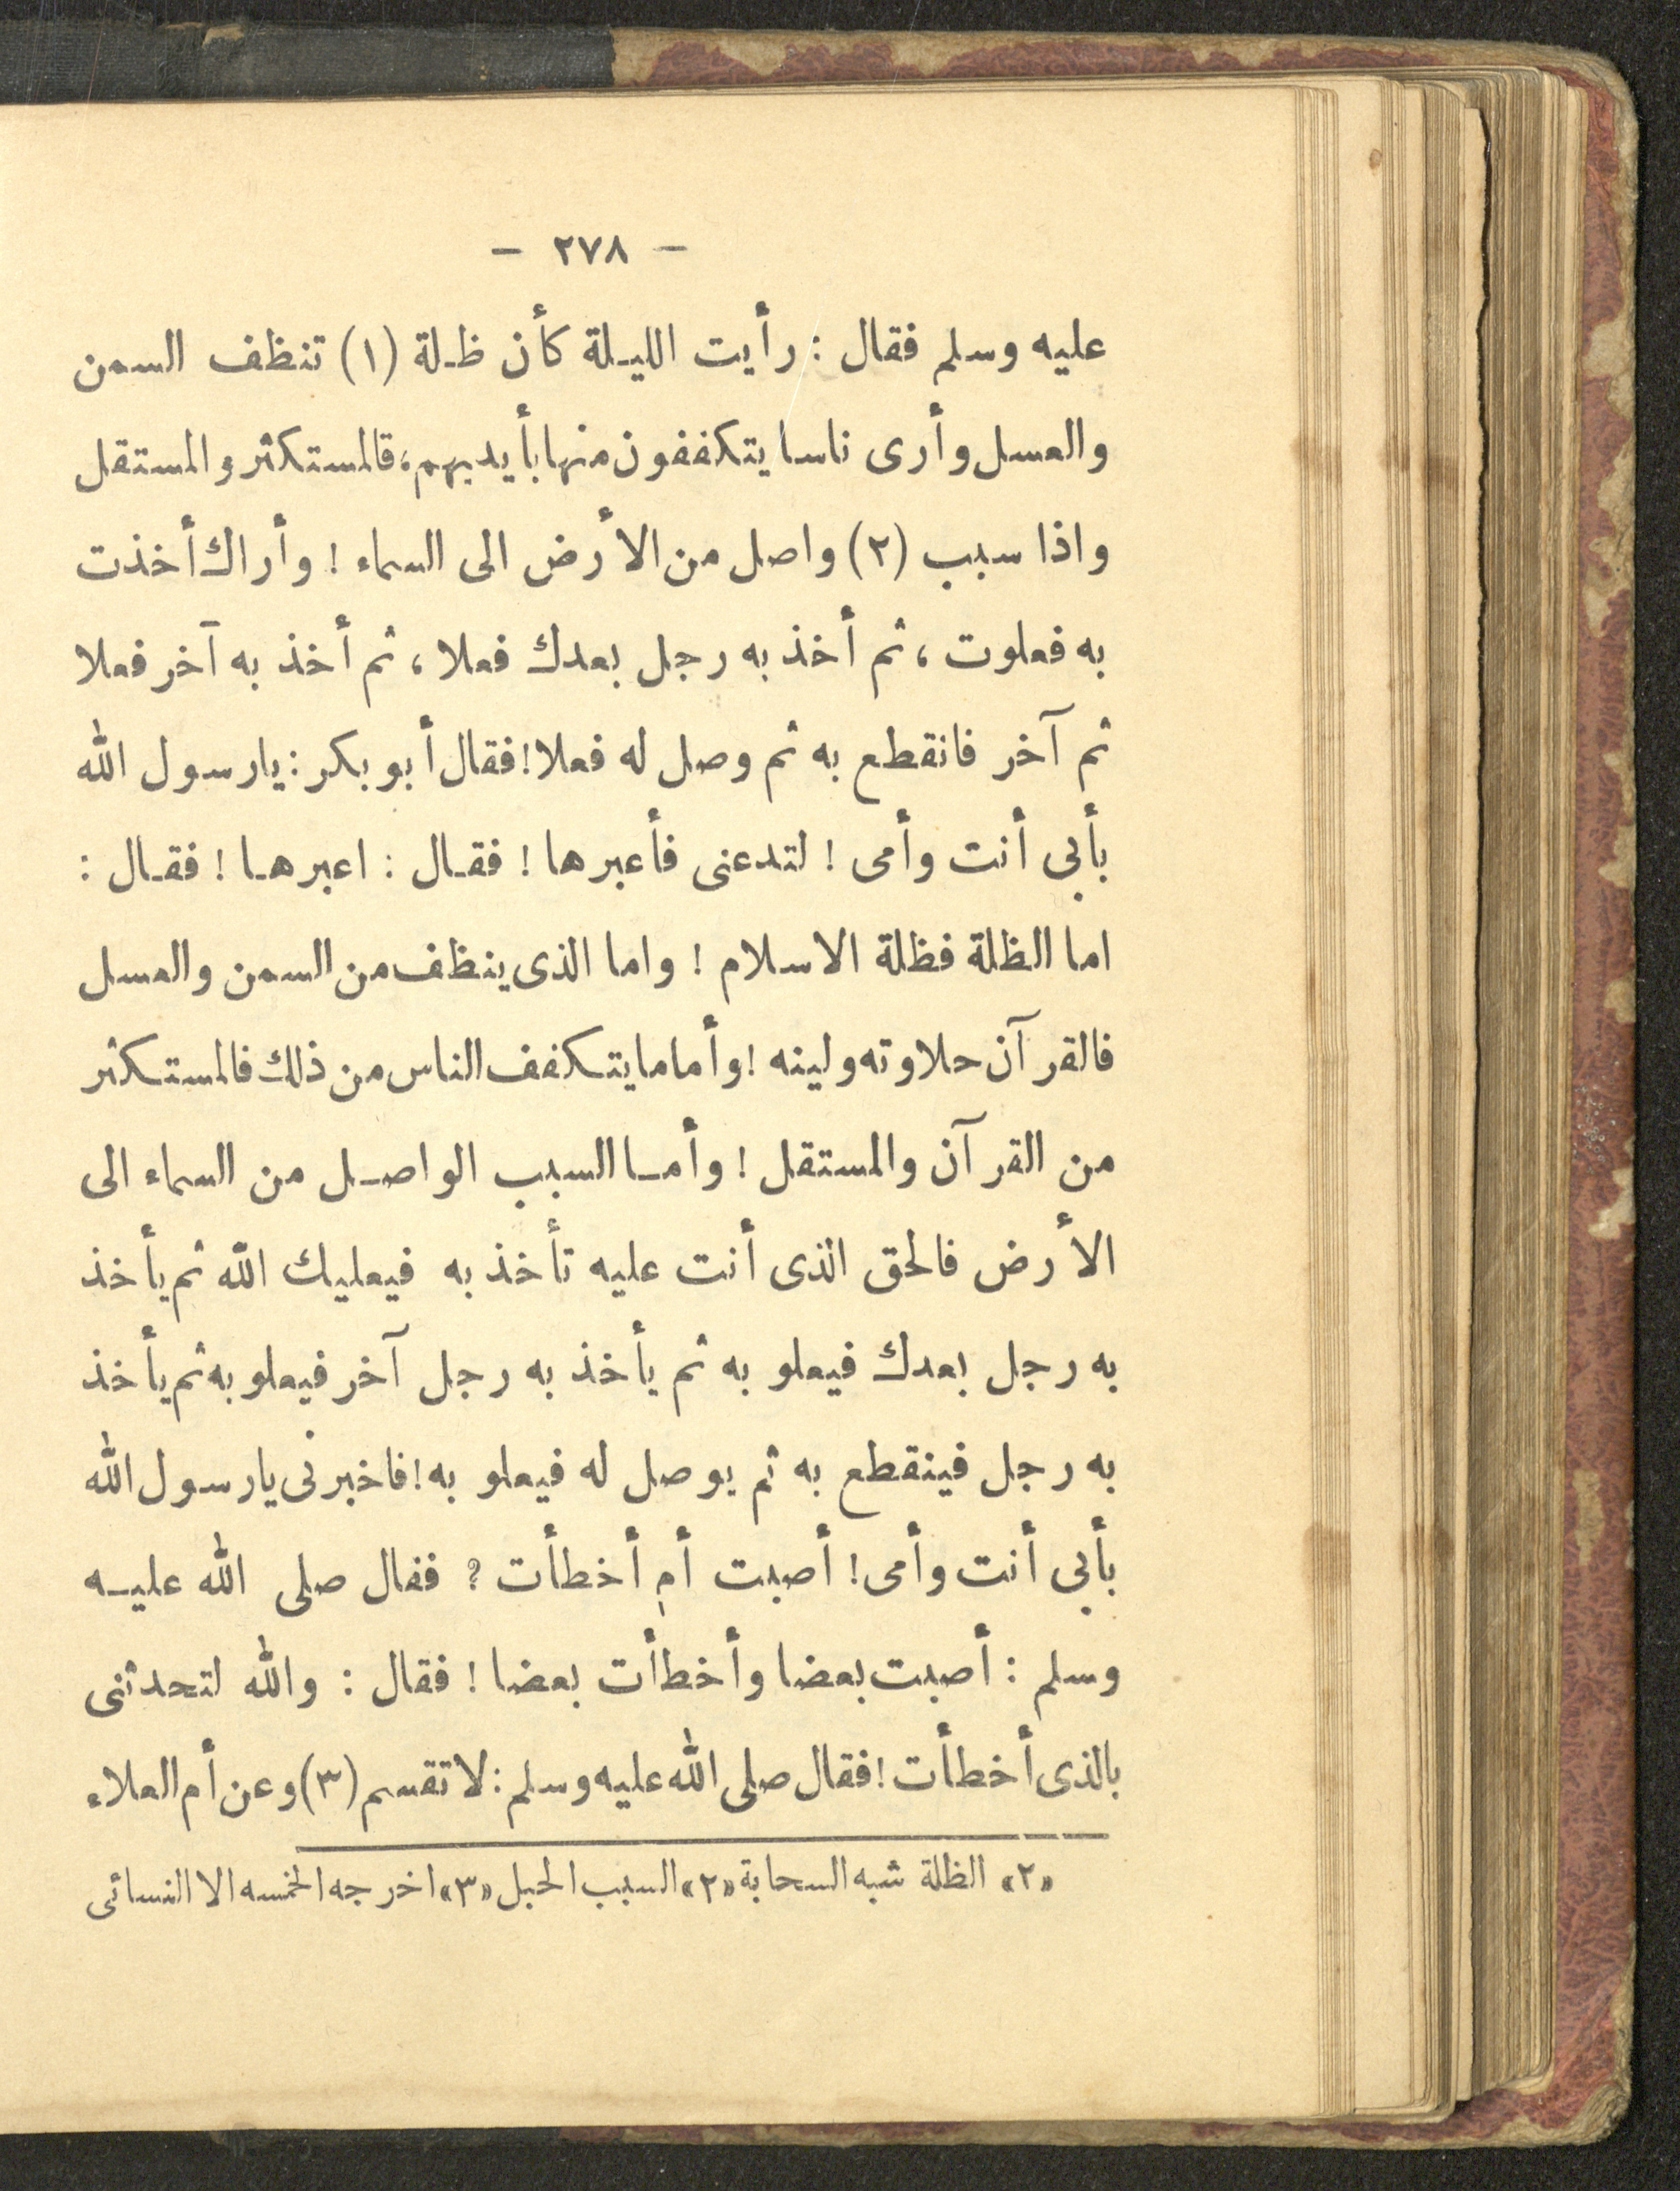 — ٢٧٨ —
عليه وسلم فقال : رأيت الليـلة كأن ظـلة (١) تنظف السمن
والعسل وأرى ناسا يتكففون منها بأيديهم، قالمستكثر والمستقل
واذا سبب (٢) واصل من الأرض الى السماء ! وأراك أخذت
به فعلوت ، ثم أخذ به رجل بعدك فعلا ، ثم أخذ به آخر فعلا
ثم آخر فانقطع به ثم وصل له فعلا ! فقال أبو بكر : يارسول الله
بأبى أنت وأمى ! لتدعنى فأعبرها ! فقـال : اعبرهـا ! فقـال :
اما الظلة فظلة الاسلام ! واما الذى ينظف من السمن والعسل
فالقرآن حلاوته ولينه ! وأما مايتـكفف الناس من ذلك فالمستـكثر
من القرآن والمستقل ! وأمـا السبب الواصـل من السماء الى
الأرض فالحق الذى أنت عليه تأخذ به فيعليك الله ثم يأخذ
به رجل بعدك فيعلو به ثم يأخذ به رجل آخر فيعلو به ثم يأخذ
به رجل فينقطع به ثم يوصل له فيعلو به ! فاخبرنى يارسول الله
بأبى أنت وأمى ! أصبت أم أخطأت ؟ ففال صلى الله عليـه
وسلم : أصبت بعضا وأخطأت بعضا ! فقال : والله لتحدثنى
بالذى أخطأت ! فقال صلى الله عليه وسلم : لا تقسم (٣) وعن أم العلاء
«٢» الظلة شبه السحابة «٢» السبب الحبل «٣» اخرجه الخمسه الا النسائى